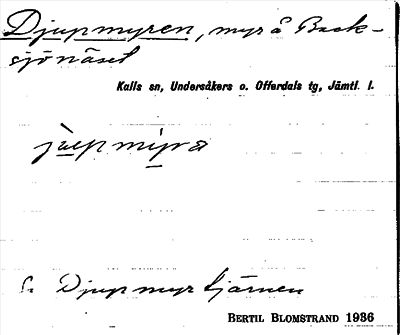 Djupmyren, myr å Back-
sjönäset
Kalls sn, Undersåkers o. Offerdals tg, Jämtl. l.
jupmyra
Djupmyrtjärnen
BERTIL BLOMSTRAND 1936